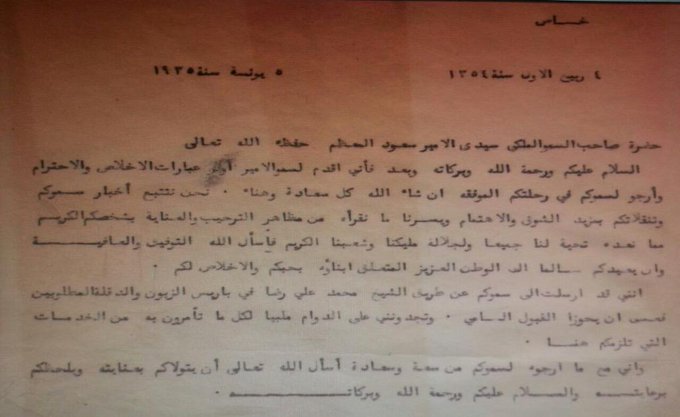 خاص
٤ ربيع الاول سنة ١٣٥٤ ٥ يونية سنة ١٩٣٥
حضرة صاحب السمو الملكي سيدي الامير سعود المعظم حفظه الله تعالى
السلام عليكم ورحمة الله وبركاته وبعد فأني اقدم لسمو الامير أوفى عبارات الاخلاص والاحترام
وأرجو لسموكم في رحلتكم الموفقه ان شاء الله كل سعادة وهناء . نحن نتتبع أخبار سموكم
وتنقلاتكم بمزيد الشوق والاهتمام ويسرنا ما نقرأه من مظاهر الترحيب والعناية بشخصكم الكريم
مما نعده تحية لنا جميعا ولجلالة مليكنا وشعبنا الكريم فأسأل الله التوفيق والعافيــــة
وان يعيدكم سالما الى الوطن العزيز المتعلق ابناؤه بحبكم والاخلاص لكم .
انني قد ارسلت الى سموكم عن طريق الشيخ محمد علي رضا في باريس الزبون والدقلة المطلوبين
فعسى ان يحوزا القبول السامي . وتجدونني على الدوام ملبيا لكل ما تأمرون به من الخدمات
التي تلزمكم هنـــا .
واني مع ما ارجوه لسموكم من سعة وسعادة أسأل الله تعالى أن يتولاكم بعنايته ويلحظكم
برعايتــــه والســـلام عليكم ورحمة الله وبركاتـــــه .